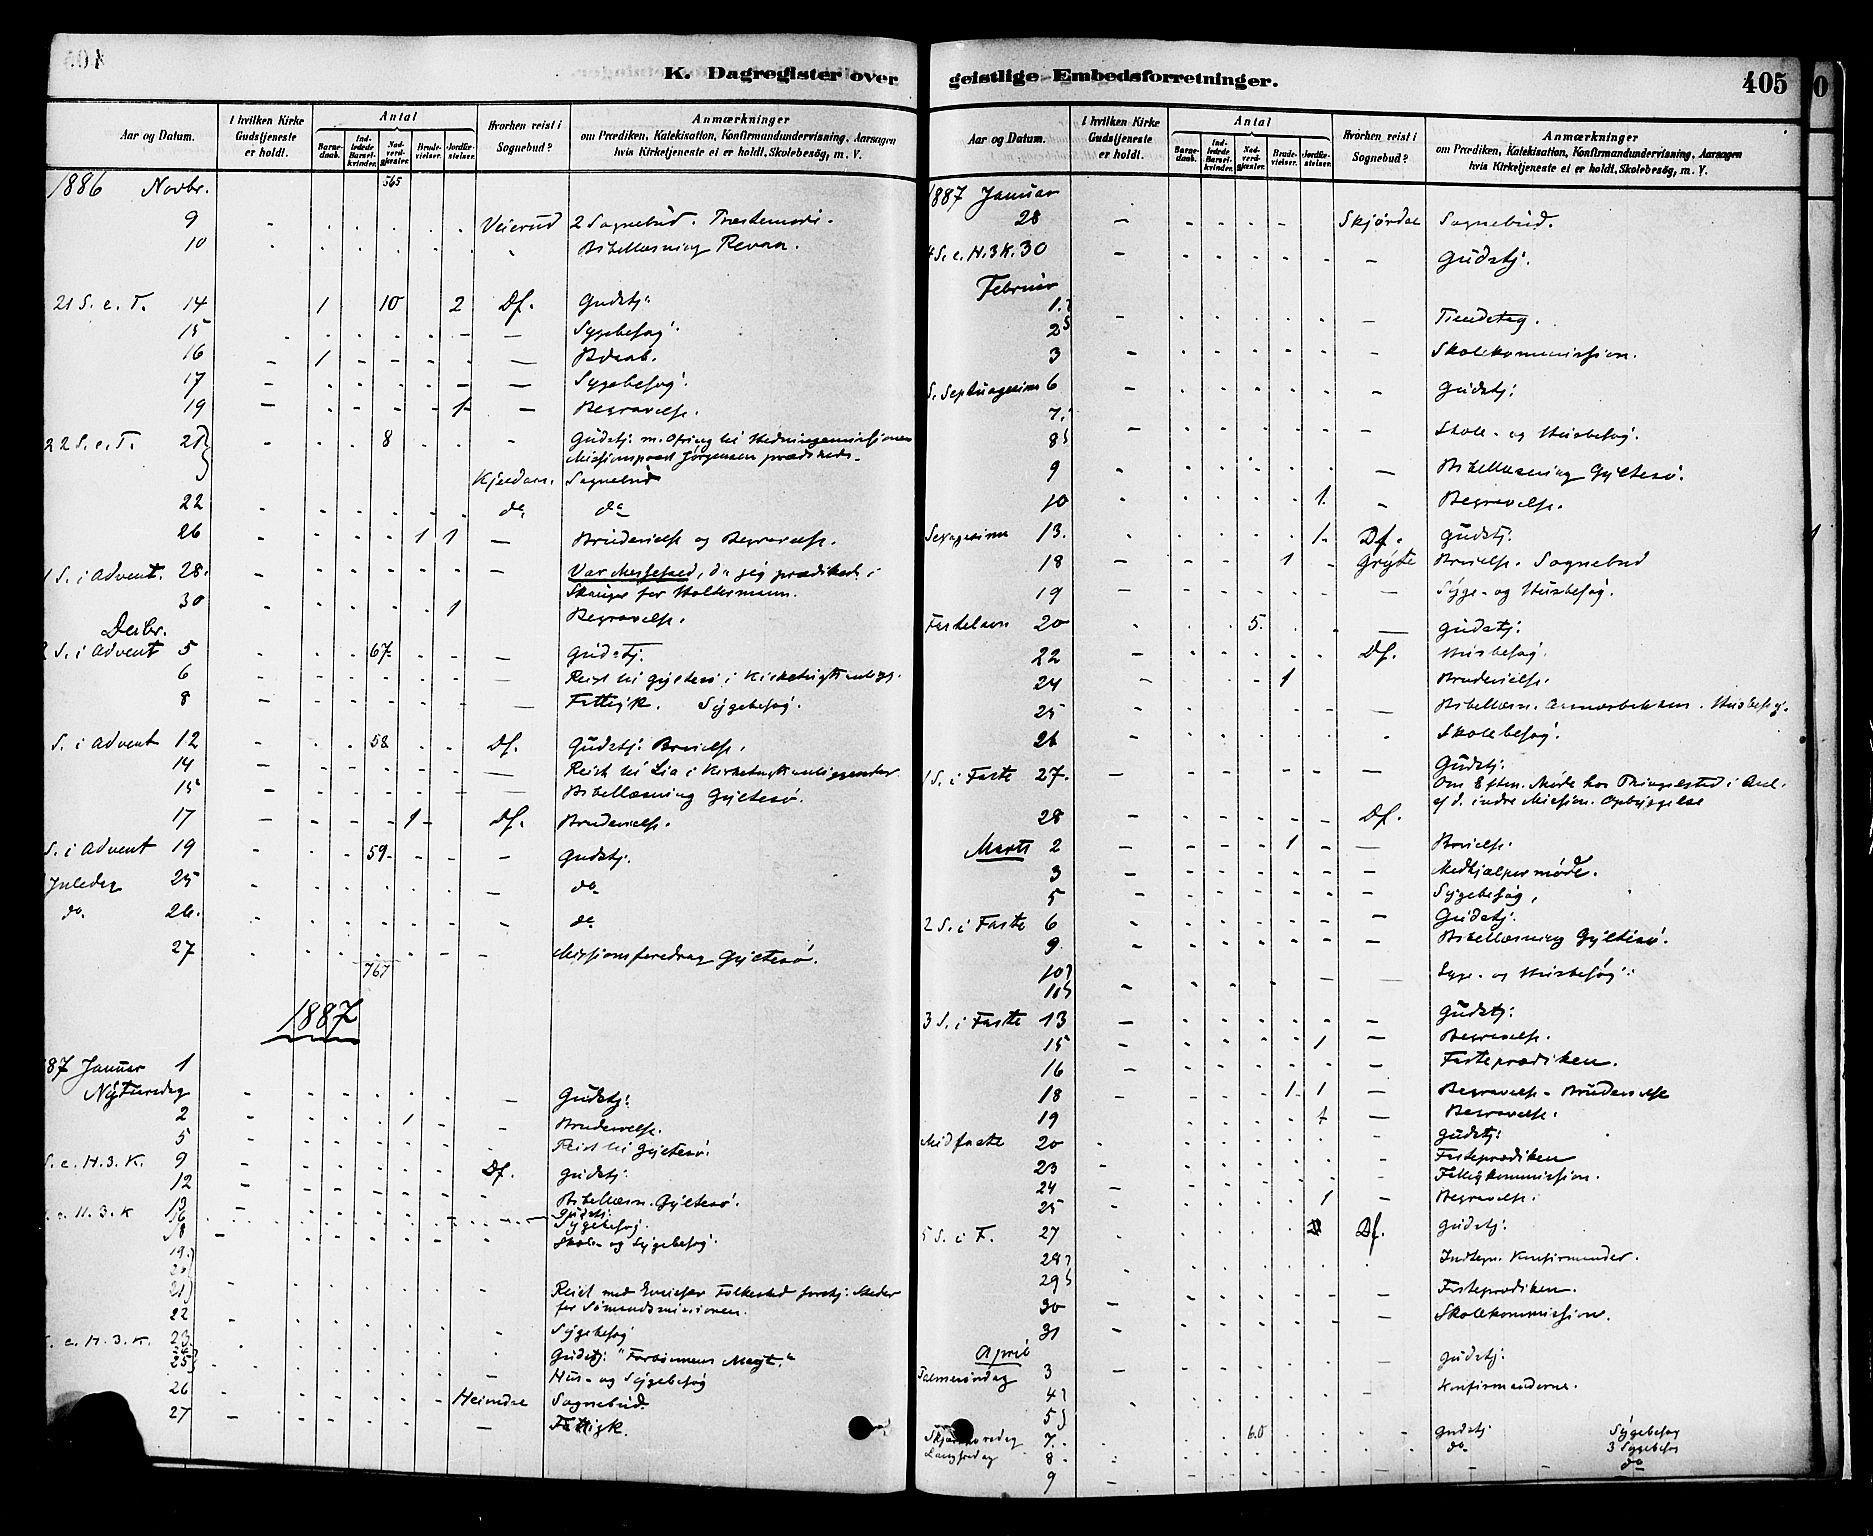 K. Dagregister over
Aar og Datum.
I hvilken Kirke Gudstjeneste er holdt.
Antal
Barnedaab.
Indledede Barselkvinder.
Nadverdgjester.
Brudevielser.
Jordfæstelser.
Hvorhen reist i Sognebud?
Anmærkninger
om Prædiken, Katekisation, Konfirmandundervisning, Aarsagen
hvis Kirketjeneste ei er holdt, Skolebesög, m. V.
1886 Novbr. 565
9 Veierud 2 Sognebud.
10 Bibellæsning Revaa.
21 S. e. T. 14 1 10 2 Df. Gudstj:
15 Sygebesøg.
16 1 Bdaab.
17 Sygebesøg.
19 1 Begravelse.
22 S. e. T. 21 8 Gudstj. m. Ofring til Hedningemissionen
Missionsprest Jørgensen prædikede.
Sognebud
22 do do
26 1 1 Brudevielse og Begravelse.
1 S. i Advent. 28. Var Messefald, da jeg prædikede i
Skouger for Holtermann.
30 1 Begravelse.
Decbr.
2 S. i Advent 5 67 Gudstj.
6 Reist til Gjeltesø i
8 Fattigk. Sygebesøg.
S. i Advent 12 58 Df. Gudstj: Brvielse.
14 Reist til Lia i Kirketugtsanliggender
15 Bibellæsning Gjeltesø.
17 1 Df. Brudevielse.
S. i Advent 19 59 Gudstj.
Juledag 25 do
do. 26. do
27 Missionsforedrag Gjeltesø.
767
1887
87 Januar 1
Nytaarsdag Gudstj:
2 1 Brudevielse.
5 Reist til Gjeltesø.
S. e. H. 3. K. 9 Df. Gudstj:
12 Bibellæsn. Gjeltesø.
13
. e. H. 3. K 16 Gudstj:
Sygebesøg.
18 Skole- og Sygebesøg.
19
20
21 Reist med Folkestad forskj. Steder
for Sømandsmissionen.
22 Sygebesøg
S. e. H. 3. K. 23 Gudstj: "Forbønnens Magt."
25 Hus- og Sygebesøg
26 Heimdal Sognebud.
27 Fattigk.
geistlige Embedsforretninger.
405
Aar og Datum.
I hvilken Kirke Gudstjeneste er holdt.
Antal
Barnedaab.
Indledede Barselkvinder.
Nadverdgjester.
Brudevielser.
Jordfæstelser.
Hvorhen reist i Sognebud?
Anmærkninger
om Prædiken, Katekisation, Konfirmandundervisning, Aarsagen
hvis Kirketjeneste ei er holdt, Skolebesög, m. V.
1887 Januar
28 Skjørdal Sognebud.
4 S. e. H. 3 K. 30 Gudstj.
Februar
1.
2 Tiendetag.
3 Skolekommission.
S. Septuagesima 6 Gudstj:
7.
8 Skole- og Husbesøg.
9 Bibellæsning Gjeltesø.
10 1 Begravelse.
Sexagesima 13. 1 Df. Gudstj.
18 1 Grøte Brvielse. Sognebud
19 Syge- og Husbesøg.
Fastelavn 20 5. Gudstj:
22 Df. Husbesøg.
24 1 Brudevielse.
25 Bibellæsn. Husbesøg.
26 Skolebesøg.
1 S. i Faste 27. Gudstj.
Om Eftm. Møde hos Thingelstad i Anl.
af d. indre Mission. Opbyggelse
28 Df.
Marts 2 1 Brvielse.
3 Medhjælpermøde.
5 Sygebesøg,
2 S. i Faste 6 Gudstj.
9 Bibellæsning Gjeltesø.
10
11 Syge- og Husbesøg:
3 S. i Faste 13 Gudstj:
15 1 Begravelse.
16 Fasteprædiken.
18 1 1 Begravelse - Brudevielse
19 1 Begravelse.
Midfaste 20 Gudstj:
23 Fasteprædiken
24 Fattigkommission.
25 1 Begravelse.
5 S. i F. 27 Df. Gudstj:
28 Indtegn. Konfirmander.
29
30 Fasteprædiken.
31 Skolekommission.
April
Palmesøndag 3 Gudstj:
4
5 Konfirmanderne.
Skjærthorsdag 7. 60 Gudstj Sygebesøg
Langfredag 8. do 3 Sygebesøg
9 do